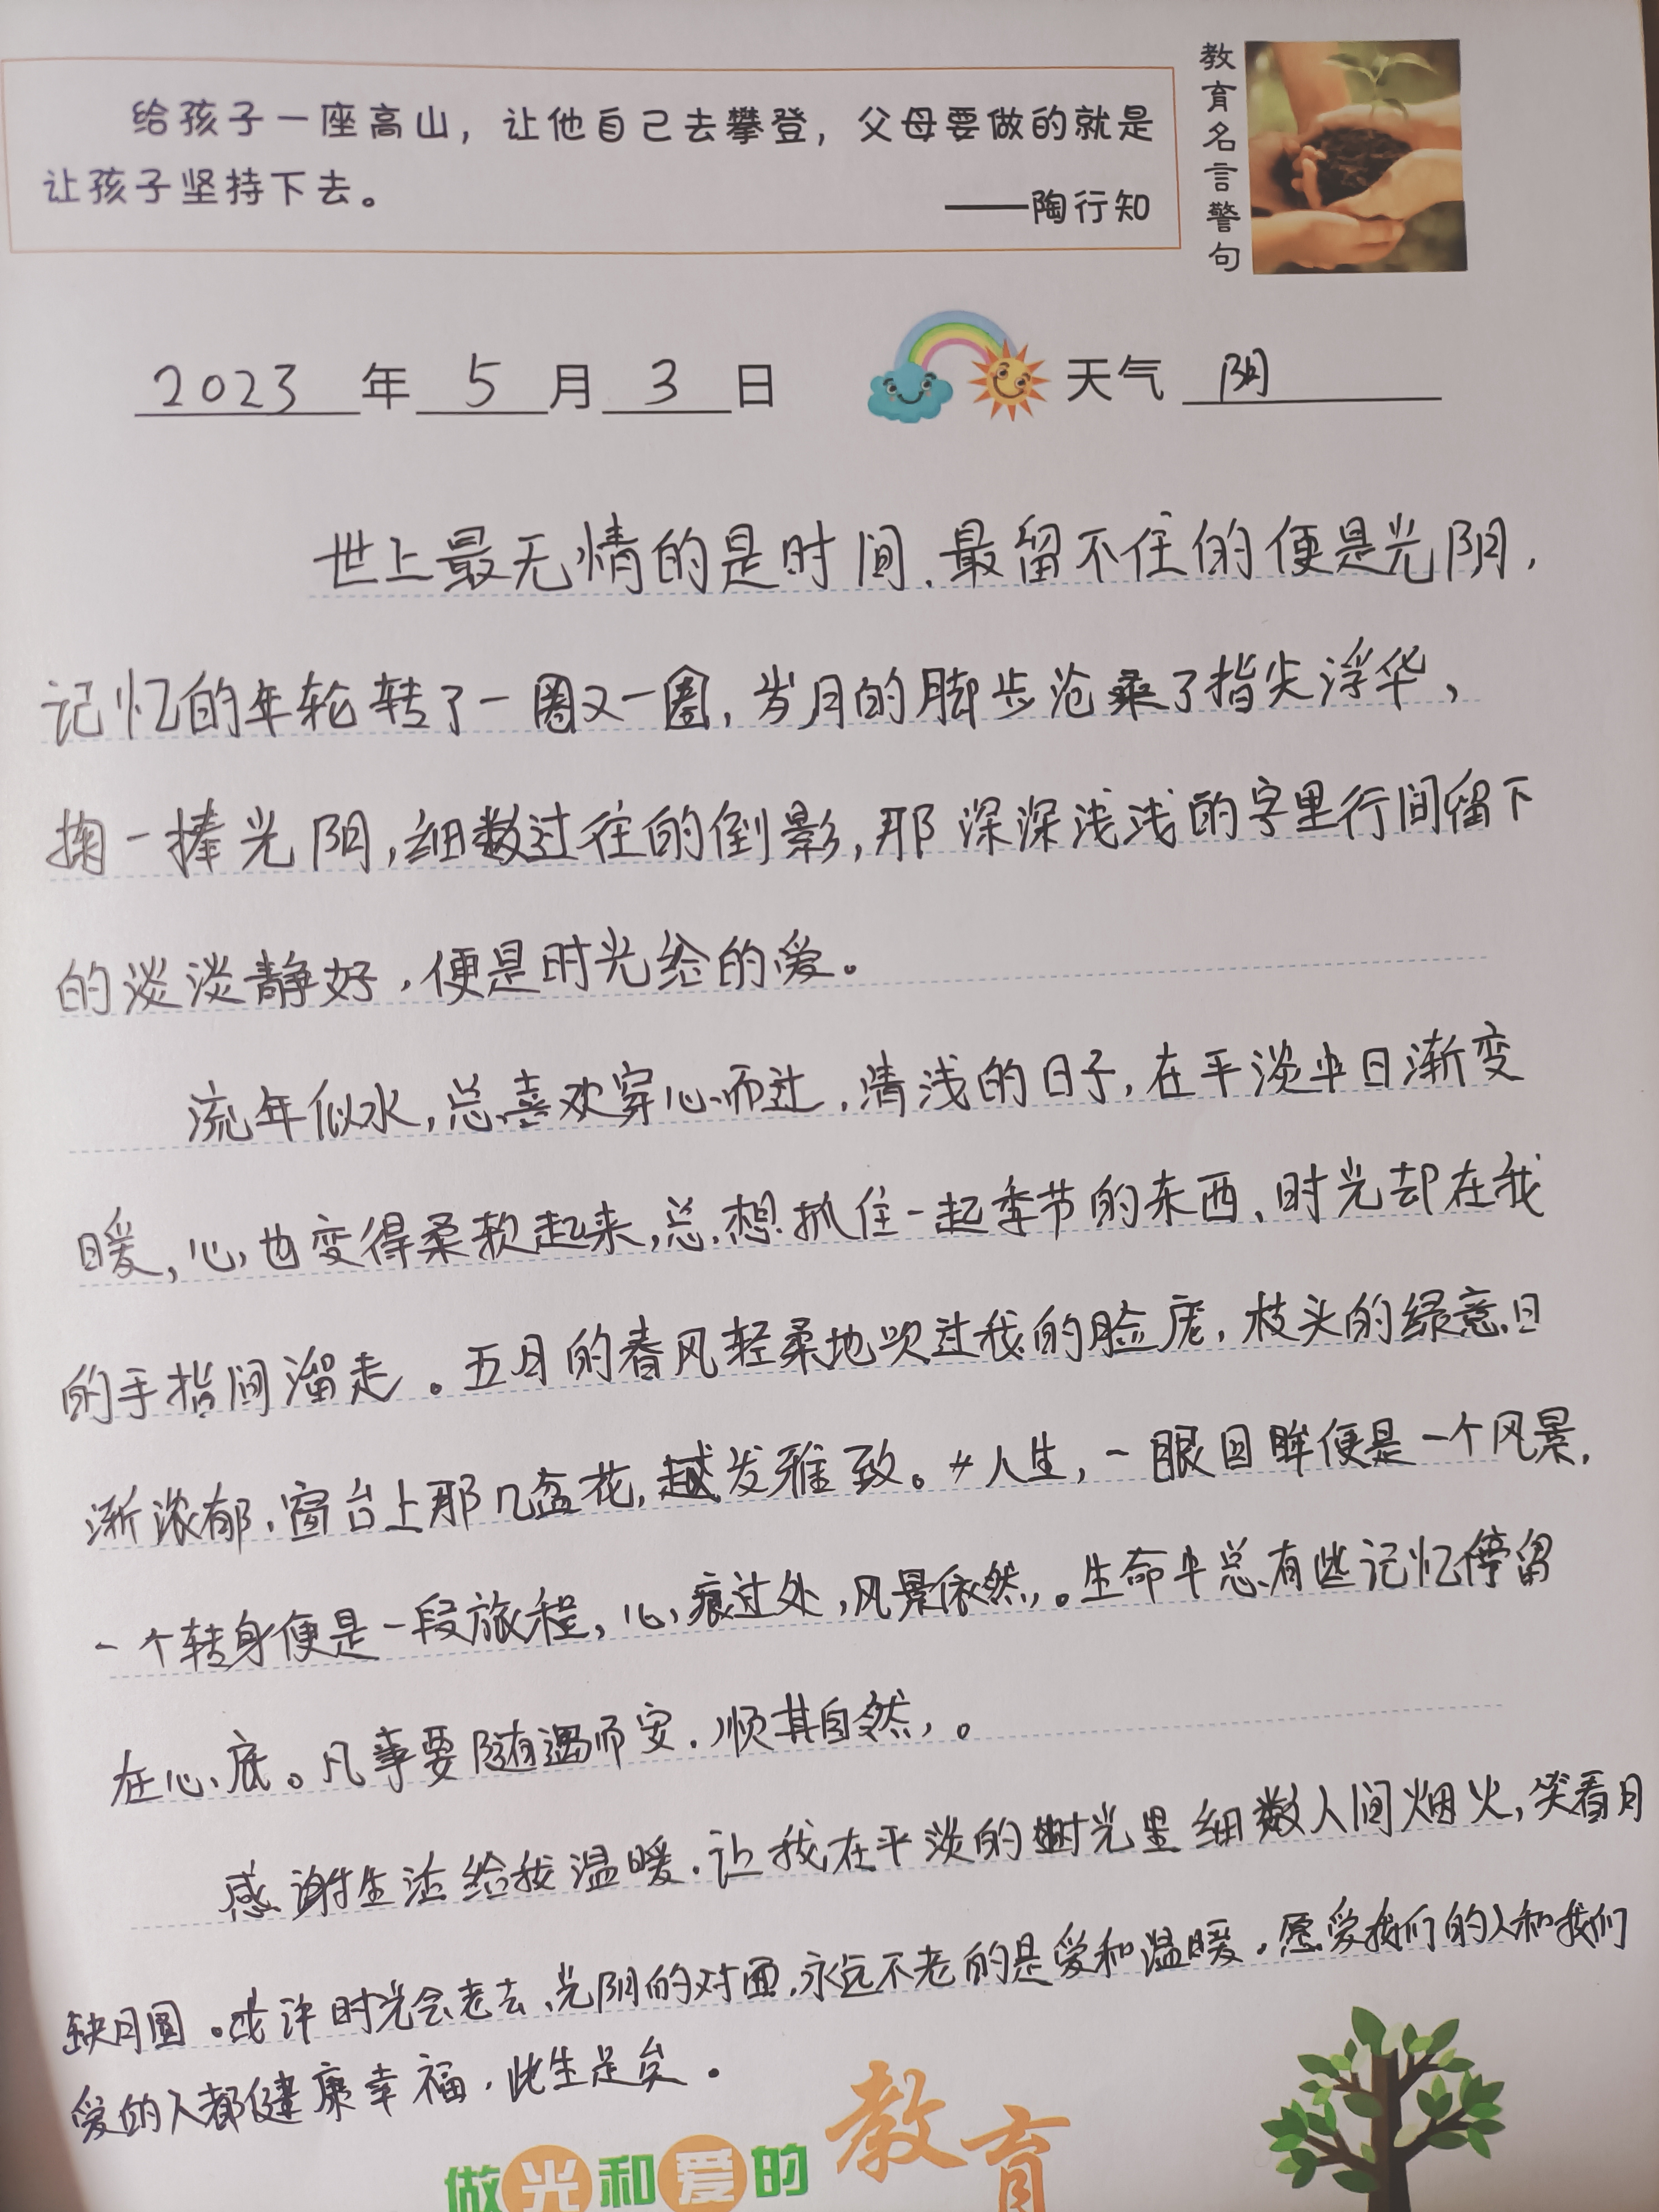 给孩子一座高山，让他自己去攀登，父母要做的就是
让孩子坚持下去。
——陶行知
教育名言警句
2023年5月3日 天气 阴
世上最无情的是时间，最留不住的便是光阴，
记忆的年轮转了一圈又一圈，岁月的脚步沧桑了指尖浮华，
掬一捧光阴，细数过往的倒影，那深深浅浅的字里行间留下
的淡淡静好，便是时光给的爱。
流年似水，总喜欢穿心而过，清浅的日子，在平淡中日渐变
暖，心也变得柔软起来，总想抓住一起季节的东西，时光却在我
的手指间溜走。五月的春风轻柔地吹过我的脸庞，枝头的绿意日
渐浓郁，窗台上那几盆花，越发雅致。人生，一眼回眸便是一个风景，
一个转身便是一段旅程，心痕过处，风景依然。生命中总有些记忆停留
在心底。凡事要随遇而安，顺其自然，。
感谢生活给我温暖，让我在平淡的时光里细数人间烟火，笑看月
缺月圆。或许时光会老去，光阴的对面，永远不老的是爱和温暖。愿爱我们的人和我们
爱的人都健康幸福，此生足矣。
做光和爱的教育